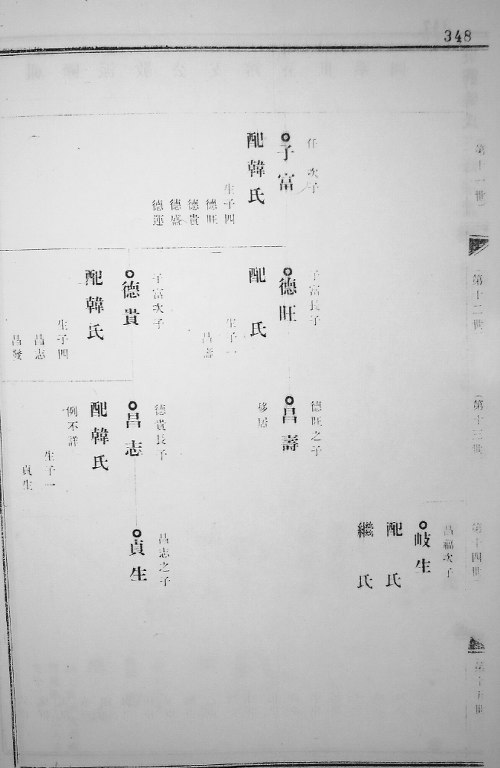 348
第十一世
第十二世
第十三世
第十四世
第十五世
昌福次子
岐生
配 氏
繼 氏
任 次子
子富
配韓氏
生子四
德旺
德貴
德盛
德運
子富長子
德旺
配 氏
生子一
昌壽
德旺之子
昌壽
移居
子富次子
德貴
配韓氏
生子四
昌志
昌發
德貴長子
昌志
配韓氏
例不詳
生子一
貞生
昌志之子
貞生